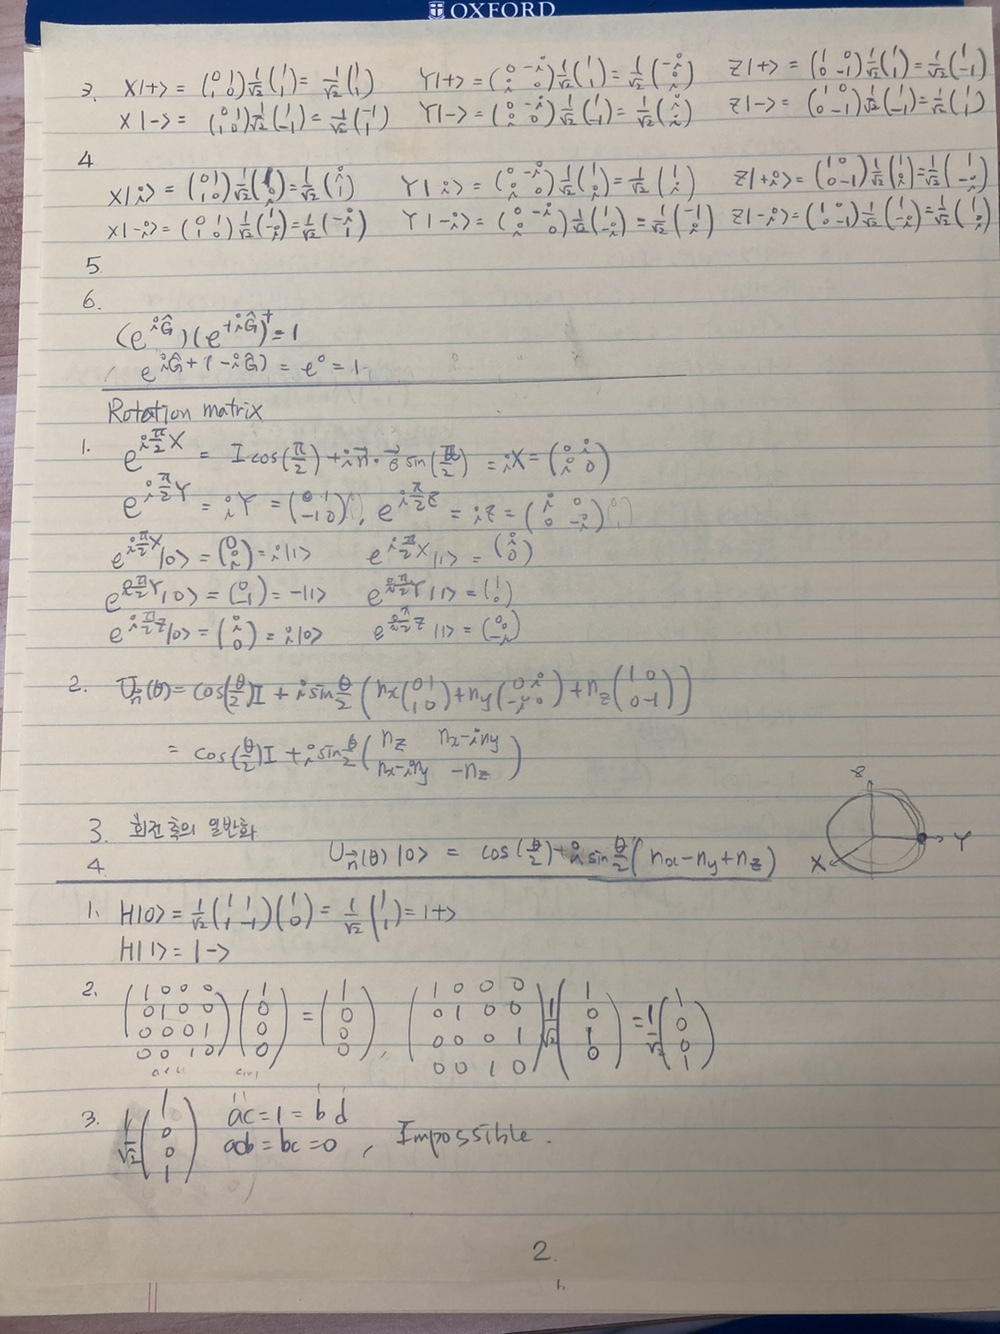 OXFORD
3. X|+> = (0 1; 1 0) 1/√2 (1; 1) = 1/√2 (1; 1)   Y|+> = (0 -i; i 0) 1/√2 (1; 1) = 1/√2 (-i; i)   Z|+> = (1 0; 0 -1) 1/√2 (1; 1) = 1/√2 (1; -1)
X|-> = (0 1; 1 0) 1/√2 (1; -1) = 1/√2 (-1; 1)   Y|-> = (0 -i; i 0) 1/√2 (1; -1) = 1/√2 (i; i)   Z|-> = (1 0; 0 -1) 1/√2 (1; -1) = 1/√2 (1; 1)
4
X|i> = (0 1; 1 0) 1/√2 (1; i) = 1/√2 (i; 1)   Y|i> = (0 -i; i 0) 1/√2 (1; i) = 1/√2 (1; i)   Z|+i> = (1 0; 0 -1) 1/√2 (1; i) = 1/√2 (1; -i)
X|-i> = (0 1; 1 0) 1/√2 (1; -i) = 1/√2 (-i; 1)   Y|-i> = (0 -i; i 0) 1/√2 (1; -i) = 1/√2 (-1; i)   Z|-i> = (1 0; 0 -1) 1/√2 (1; -i) = 1/√2 (1; i)
5.
6.
(e^{iĜ})(e^{+iĜ})^† = 1
e^{iĜ+(-iĜ)} = e^0 = 1
Rotation matrix
1. e^{i π/2 X} = I cos(π/2) + i n⃗·σ⃗ sin(π/2) = iX = (0 i; i 0)
e^{i π/2 Y} = iY = (0 1; -1 0), e^{i π/2 Z} = iZ = (i 0; 0 -i)
e^{i π/2 X}|0> = (0; i) = i|1>   e^{i π/2 X}|1> = (i; 0)
e^{i π/2 Y}|0> = (0; -1) = -|1>   e^{i π/2 Y}|1> = (1; 0)
e^{i π/2 Z}|0> = (i; 0) = i|0>   e^{i π/2 Z}|1> = (0; -i)
2. U_n⃗(θ) = cos(θ/2)I + i sin θ/2 (n_x(0 1; 1 0) + n_y(0 i; -i 0) + n_z(1 0; 0 -1))
= cos(θ/2)I + i sin θ/2 (n_z n_x-in_y; n_x-in_y -n_z)
3. 회전축의 일반화
4   U_n⃗(θ)|0> = cos(θ/2) + i sin θ/2 (n_x - n_y + n_z)
Z
Y
X
1. H|0> = 1/√2 (1 1; 1 -1)(1; 0) = 1/√2 (1; 1) = |+>
H|1> = |->
2. (1 0 0 0; 0 1 0 0; 0 0 0 1; 0 0 1 0)(1; 0; 0; 0) = (1; 0; 0; 0), (1 0 0 0; 0 1 0 0; 0 0 0 1; 0 0 1 0) 1/√2 (1; 0; 1; 0) = 1/√2 (1; 0; 0; 1)
3. 1/√2 (1; 0; 0; 1)   ac = 1 = bd
adb = bc = 0, Impossible.
2.